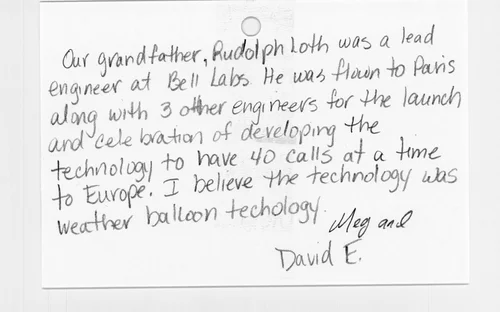 Our grandfather, Rudolph Loth was a lead
engineer at Bell Labs. He was flown to Paris
along with 3 other engineers for the launch
and celebration of developing the
technology to have 40 calls at a time
to Europe. I believe the technology was
weather balloon techology.
Meg and
David E.